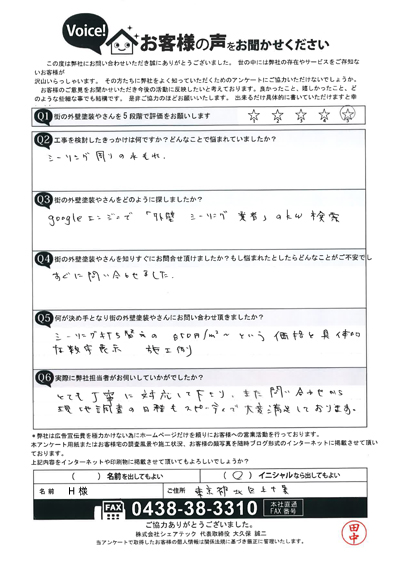 Voice!
お客様の声をお聞かせください
この度は弊社にお問い合わせいただき誠にありがとうございました。世の中には弊社の存在やサービスをご存知ないお客様が
沢山いらっしゃいます。その方たちに弊社をよく知っていただくためのアンケートにご協力いただけないでしょうか。
お客様のご意見をお聞かせいただき今後の活動に反映したいと考えております。良かったこと、嬉しかったこと、ど
のような些細な事でも結構です。是非ご協力のほどお願いいたします。出来るだけ具体的に書いていただけますと幸
Q1 街の外壁塗装やさんを5段階で評価をお願いします
Q2 工事を検討したきっかけは何ですか？どんなことで悩まれていましたか？
シーリング周りの水もれ.
Q3 街の外壁塗装やさんをどのように探しましたか？
googleエンジンで「外壁 シーリング 業者」
検索
Q4 街の外壁塗装やさんを知りすぐにお問合せ頂けましたか？もし悩まれたとしたらどんなことがご不安でし
すぐに問い合わせました.
Q5 何が決め手となり街の外壁塗装やさんにお問い合わせ頂きましたか？
シーリング打ち替えの 850円/m²～ という価格と具体的
な数字表示 施工例
Q6 実際に弊社担当者がお伺いしていかがでしたか？
とても丁寧に対応して下さり、また問い合わせから
現地調査の日程もスピーディで大変満足しております。
＊弊社は広告宣伝費を極力かけない為にホームページだけを頼りにお客様への営業活動を行っております。
本アンケート用紙またはお客様宅の調査風景や施工状況、お客様の顔写真を随時ブログ形式のインターネットに掲載させて頂い
ております。
上記内容をインターネットや印刷物に掲載させて頂いてもよろしいでしょうか？
（ ）名前を出してもよい （○）イニシャルなら出してもよい
名前 H様 ご住所 東京都北区上十条
FAX 0438-38-3310 本社直通 FAX番号
ご協力ありがとうございました。
株式会社シェアテック 代表取締役 大久保 誠二
当アンケートで取得したお客様の個人情報は関係法規に基づき厳正に管理いたします。
田中